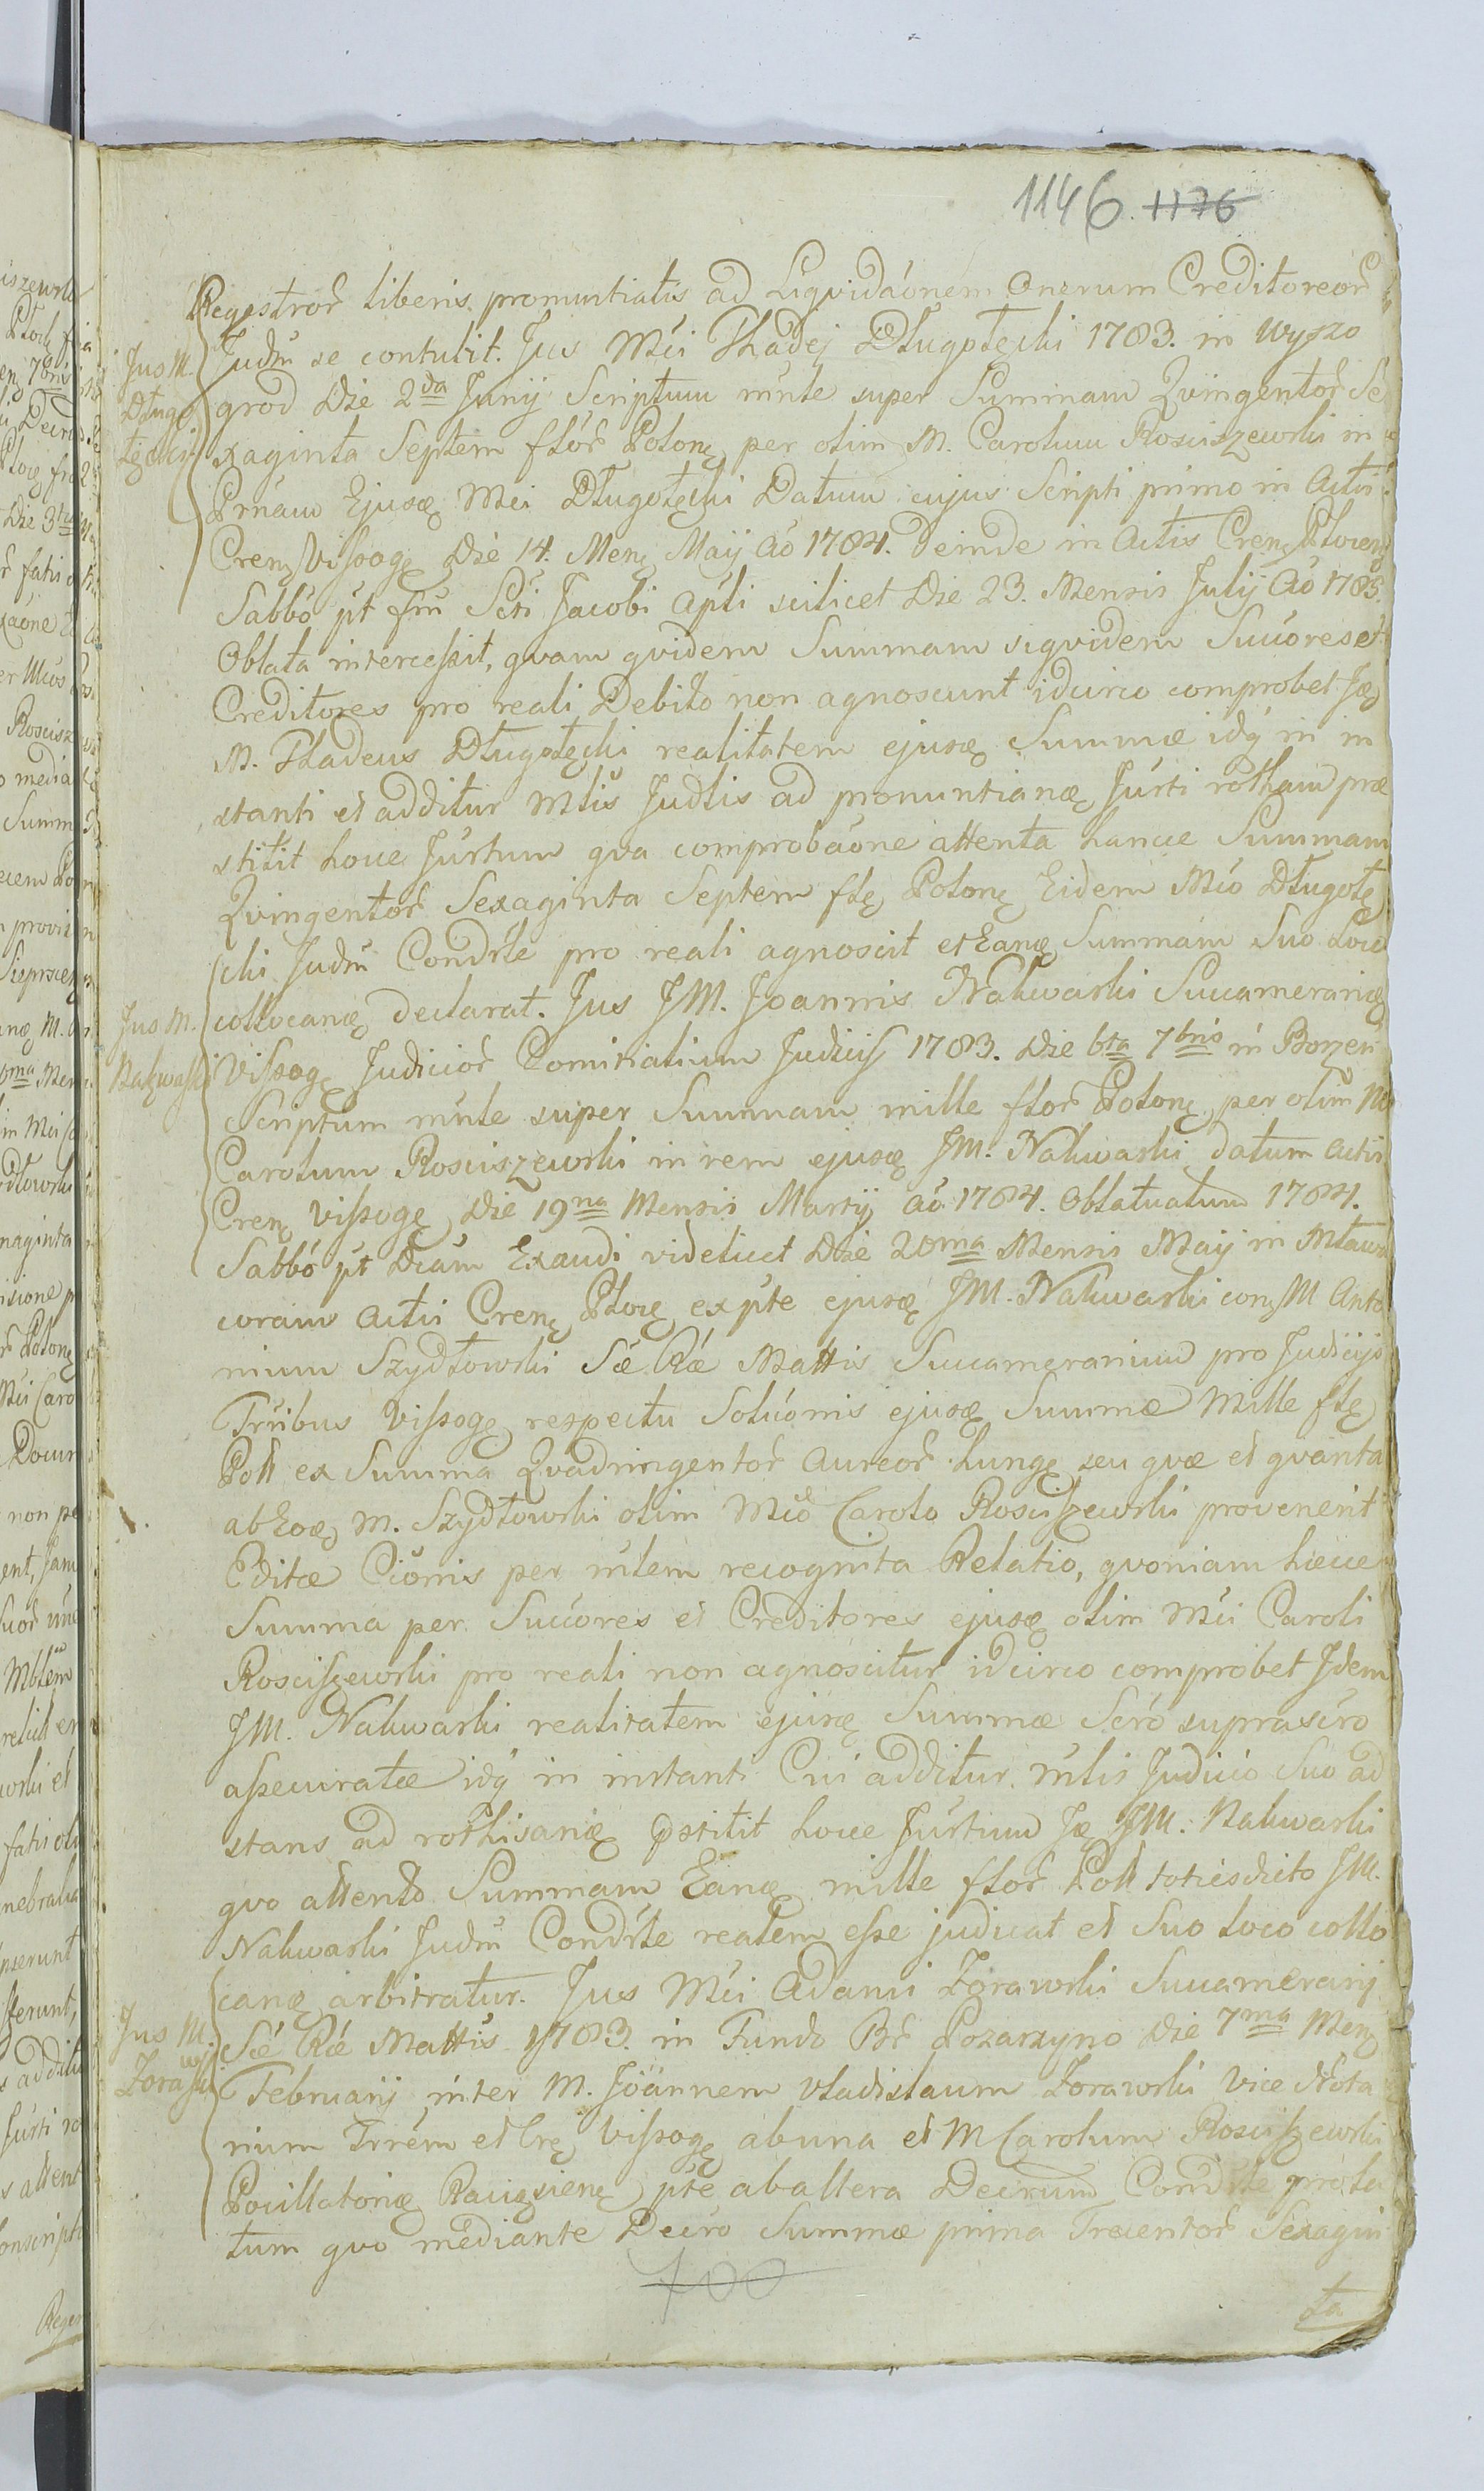 1146. 1176
Regestror̃ liberis pronuntiatis ad Liqvidaõnem Onerum Creditoreor̃
Jus M. Judm̃ se contulit. Jus Mci Thadej Długołęcki 1783. in Wyszo
Długo grod Die 2da Junij Scriptum mnle super Summam Qvingentor̃ Se
łęcki xaginta Septem flor̃ Polonę per olim M. Carolum Rosciszewski in
Prnam Ejusdę Mci Długołęcki Datum cujus Scripti primo in Actis
Crenę Vissogę Die 14. Menę Maij Aó 1784. Deinde in Actis Crenę Plocenę
Sabbó pt fm̃ Scti Jacobi Apli scilicet Die 23. Mensis Julij Aó 1785.
Oblata intercessit, qvam qvidem Summam siqvidem Succores et
Creditores pro reali Debito non agnoscunt idcirco comprobet Jdę
M. Thadeus Długołęcki realitatem ejusdę Summæ idq́ in in
stanti et additur Mlis Judlis ad pronuntianę Jurti rotham præ
stitit hocce Jurtum qva comprobaóne attenta hancce Summam
Qvingentor̃ Sexaginta Septem flę Polonę Eidem Mco Długołę
cki Judm̃ Condrle pro reali agnoscit et Eanę Summam Suo Loco
Jus M. collocanę declarat. Jus JM. Joannis Nakwaski Succamerarię
Nakwaski Vissogę Judicior̃ Comitialium Judicis 1783. Die 6ta 7bris in Borzen
Scriptum mnle super Summam mille flor̃ Polonę per olim M
Carolum Rosciszewski in rem ejusdę JM. Nakwaski datum actis
Crenę Vissogę Die 19na Mensis Martij Aó 1784. Oblatuatum 1784.
Sabbó pt Dcam Exaudi videlicet Die 20ma Mensis Maij in Mława
coram Actis Crenę Plocę ex pte ejusdę JM. Nakwaski conę M Anto
nium Szydłowski Sæ Ræ Mattis Succamerarium pro Judicijs
Trribus Vissogę respectu Soluónis ejusdę Summæ Mille flę
Poll ex Summa Qvadringentor̃ Aureor̃ Hungę seu qvæ et qvanta
ab Eodę M. Szydłowski olim Mco Carolo Rosciszewski provenerit
Editæ Cióonis per mlem recognita Relatio, qvoniam hæcce
Summa per Succores et Creditores ejusdę olim Mci Caroli
Rosciszewski pro reali non agnoscitur idcirco comprobet Jdem
JM. Nakwaski realitatem ejusdę Summæ Scró suprascro
assecuratæ idq́ in instanti Cui additur mlis Judicio Suo ad
stans ad rothisanę pstitit hocce Jurtum Jdę JM. Nakwaski
qvo attento Summam Eandę mille flor̃ Poll totiesdicto JM.
Nakwaski Judm̃ Condrle realem esse judicat et Suo loco collo
canę arbitratur. Jus Mci Adami Zorawski Succamerarij
Jus M. Sæ Ræ Mattis 1783. in Fundo Bor̃ Pozarzyno Die 7ma Menę
Zorawski Februarij inter M. Joannem Vladislaum Zorawski Vice Nota
rium Trrem et Crę Vissogę ab una et M Carolum Rosciszewski
Pocillatorię Raciązienę pte ab altera Decrum Condrle prola
tum qvo mediante Decro Summæ prima Trecentor̃ Sexagin
ta
700